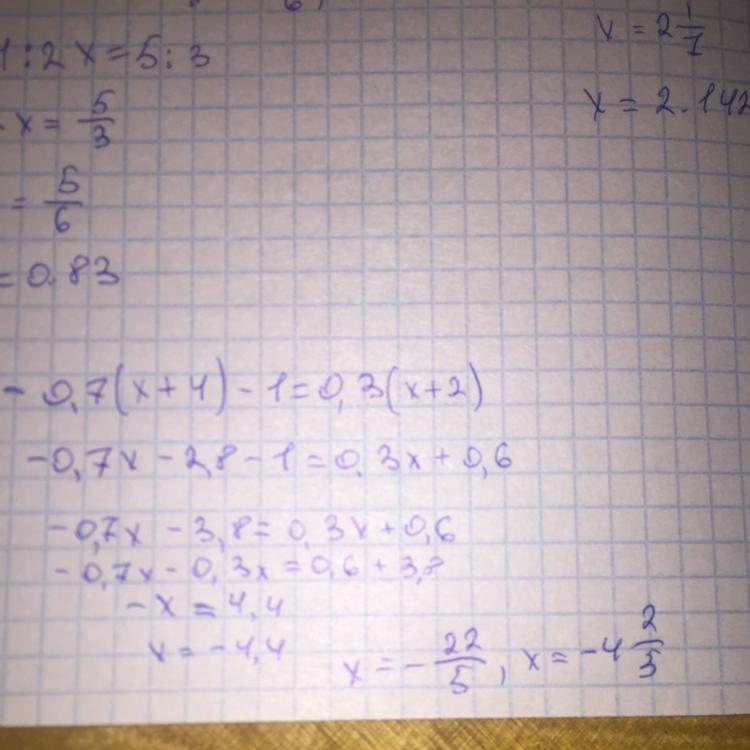 1 : 2 x = 5 : 3
x = 5/3
= 5/6
= 0.83
x = 2 1/7
x = 2.142
- 0,7(x+4) - 1 = 0,3(x+2)
-0,7x - 2,8 - 1 = 0,3x + 0,6
-0,7x - 3,8 = 0,3x + 0,6
-0,7x - 0,3x = 0,6 + 3,8
-x = 4,4
x = -4,4
x = - 22/5, x = -4 2/5